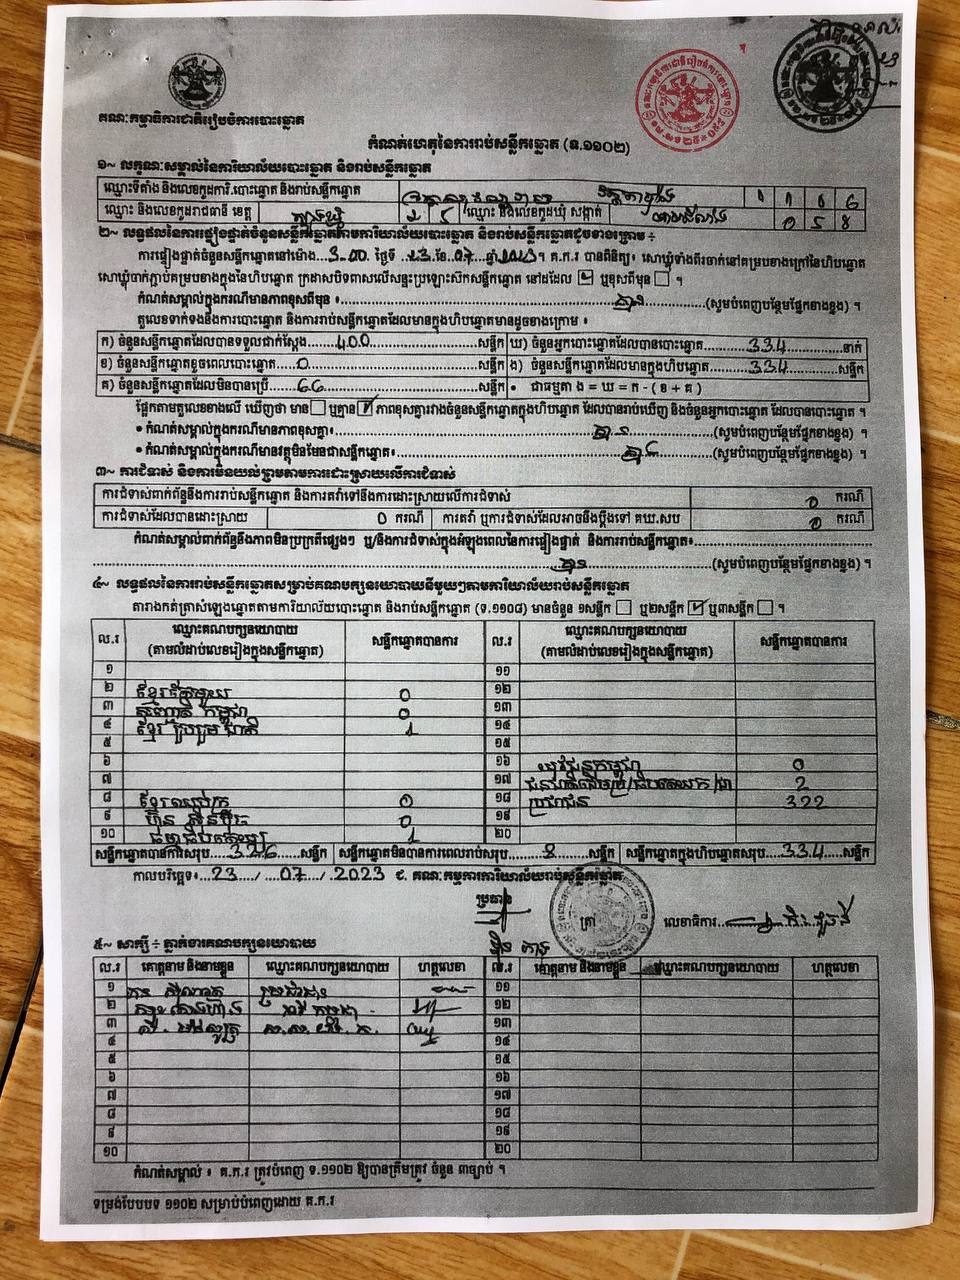 គណៈកម្មាធិការជាតិរៀបចំការបោះឆ្នោត
កំណត់ហេតុនៃការរាប់សន្លឹកឆ្នោត (ទ.១១០២)
១~ លក្ខណៈសម្គាល់នៃការិយាល័យបោះឆ្នោត និងរាប់សន្លឹកឆ្នោត
ឈ្មោះទីតាំង និងលេខកូដការិ.បោះឆ្នោត និងរាប់សន្លឹកឆ្នោត
ឈ្មោះ និងលេខកូដរាជធានី ខេត្ត ឈ្មោះ និងលេខកូដឃុំ សង្កាត់ 0 5 8
២~ លទ្ធផលនៃការផ្ទៀងផ្ទាត់ចំនួនសន្លឹកឆ្នោតតាមការិយាល័យបោះឆ្នោត និងរាប់សន្លឹកឆ្នោតដូចខាងក្រោម ÷
ការផ្ទៀងផ្ទាត់ចំនួនសន្លឹកឆ្នោតនៅម៉ោង...3-00...ថ្ងៃទី ..23..ខែ..07..ឆ្នាំ.2023..។ គ.ក.រ បានពិនិត្យ៖ សោឃ្លុំទាំងពីរចាក់នៅគម្របខាងក្រៅនៃហិបឆ្នោត
សោឃ្លុំចាក់ភ្ជាប់គម្របខាងក្នុងនៃហិបឆ្នោត ក្រដាសបិទពាសលើសន្ទះប្រឡោះស៊កសន្លឹកឆ្នោត នៅដដែល ☑ ឬខុសពីមុន ☐ ។
កំណត់សម្គាល់ក្នុងករណីមានភាពខុសពីមុន ៖ គ្មាន (សូមបំពេញបន្ថែមផ្នែកខាងខ្នង) ។
តួលេខទាក់ទងនឹងការបោះឆ្នោត និងការរាប់សន្លឹកឆ្នោតដែលមានក្នុងហិបឆ្នោតមានដូចខាងក្រោម ៖
ក) ចំនួនសន្លឹកឆ្នោតដែលបានទទួលជាក់ស្តែង.....400.....សន្លឹក ឃ) ចំនួនអ្នកបោះឆ្នោតដែលបានបោះឆ្នោត.....334.....នាក់
ខ) ចំនួនសន្លឹកឆ្នោតខូចពេលបោះឆ្នោត.....0.....សន្លឹក ង) ចំនួនសន្លឹកឆ្នោតដែលមានក្នុងហិបឆ្នោត.....334.....សន្លឹក
គ) ចំនួនសន្លឹកឆ្នោតដែលមិនបានប្រើ.....66.....សន្លឹក • ជាធម្មតា ង = ឃ = ក - ( ខ + គ )
ផ្អែកតាមតួលេខខាងលើ ឃើញថា មាន ☐ ឬគ្មាន ☑ ភាពខុសគ្នារវាងចំនួនសន្លឹកឆ្នោតក្នុងហិបឆ្នោត ដែលបានរាប់ឃើញ និងចំនួនអ្នកបោះឆ្នោត ដែលបានបោះឆ្នោត ។
• កំណត់សម្គាល់ក្នុងករណីមានភាពខុសគ្នា៖ គ្មាន (សូមបំពេញបន្ថែមផ្នែកខាងខ្នង) ។
• កំណត់សម្គាល់ក្នុងករណីមានវត្ថុមិនមែនជាសន្លឹកឆ្នោត៖ គ្មាន (សូមបំពេញបន្ថែមផ្នែកខាងខ្នង) ។
៣~ ការជំទាស់ និងការមិនយល់ព្រមតាមការដោះស្រាយលើការជំទាស់
ការជំទាស់ពាក់ព័ន្ធនឹងការរាប់សន្លឹកឆ្នោត និងការតវ៉ាទៅនឹងការដោះស្រាយលើការជំទាស់ 0 ករណី
ការជំទាស់ដែលបានដោះស្រាយ 0 ករណី ការតវ៉ា ឬការជំទាស់ដែលអាចនឹងប្តឹងទៅ គឃ.សប 0 ករណី
កំណត់សម្គាល់ពាក់ព័ន្ធនឹងភាពមិនប្រក្រតីផ្សេងៗ ឬ/និងការជំទាស់ក្នុងអំឡុងពេលនៃការផ្ទៀងផ្ទាត់ និងការរាប់សន្លឹកឆ្នោត៖
គ្មាន (សូមបំពេញបន្ថែមផ្នែកខាងខ្នង) ។
៤~ លទ្ធផលនៃការរាប់សន្លឹកឆ្នោតសម្រាប់គណបក្សនយោបាយនីមួយៗតាមការិយាល័យរាប់សន្លឹកឆ្នោត
តារាងកត់ត្រាសំឡេងឆ្នោតតាមការិយាល័យបោះឆ្នោត និងរាប់សន្លឹកឆ្នោត (ទ.១១០៨) មានចំនួន ១សន្លឹក ☐ ឬ២សន្លឹក ☑ ឬ៣សន្លឹក ☐ ។
ល.រ ឈ្មោះគណបក្សនយោបាយ សន្លឹកឆ្នោតបានការ ល.រ ឈ្មោះគណបក្សនយោបាយ សន្លឹកឆ្នោតបានការ
(តាមលំដាប់លេខរៀងក្នុងសន្លឹកឆ្នោត) (តាមលំដាប់លេខរៀងក្នុងសន្លឹកឆ្នោត)
១ ១១
២ ខ្មែររួបរួម 0 ១២
៣ កម្ពុជា 0 ១៣
៤ ខ្មែរ រួបរួម ជាតិ 1 ១៤
៥ ១៥
៦ ១៦ យុវជនកម្ពុជា 0
៧ ១៧ 2
៨ ខ្មែរ 0 ១៨ ប្រជាជន 322
៩ 0 ១៩
១០ 1 ២០
សន្លឹកឆ្នោតបានការសរុប...326...សន្លឹក សន្លឹកឆ្នោតមិនបានការពេលរាប់សរុប...8...សន្លឹក សន្លឹកឆ្នោតក្នុងហិបឆ្នោតសរុប...334...សន្លឹក
កាលបរិច្ឆេទ៖ 23 / 07 / 2023 ជ. គណៈកម្មការការិយាល័យរាប់សន្លឹកឆ្នោត
ប្រធាន ត្រា លេខាធិការ
៥~ សាក្សី ÷ ភ្នាក់ងារគណបក្សនយោបាយ
ល.រ គោត្តនាម និងនាមខ្លួន ឈ្មោះគណបក្សនយោបាយ ហត្ថលេខា ល.រ គោត្តនាម និងនាមខ្លួន ឈ្មោះគណបក្សនយោបាយ ហត្ថលេខា
១ ប្រជាជន ១១
២ ១២
៣ ១៣
៤ ១៤
៥ ១៥
៦ ១៦
៧ ១៧
៨ ១៨
៩ ១៩
១០ ២០
កំណត់សម្គាល់ ៖ គ.ក.រ ត្រូវបំពេញ ទ.១១០២ ឱ្យបានត្រឹមត្រូវ ចំនួន ៣ច្បាប់ ។
ទម្រង់បែបបទ ១១០២ សម្រាប់បំពេញដោយ គ.ក.រ